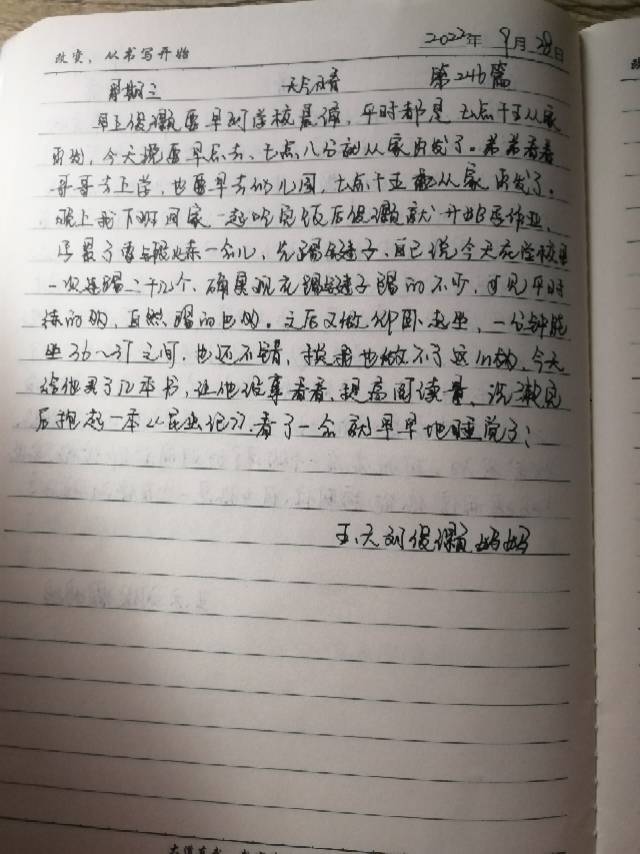 改变，从书写开始
2022年 9月 28日
星期三 天气晴 第246篇
早上俊颢要早到学校晨读，平时都是七点十五从家
出发，今天提要早点去，七点八分就从家出发了。弟弟看着
哥哥去上学，也要早去幼儿园，七点十五都从家出发了。
晚上我下班回家，一起吃完饭后俊颢就开始写作业，
写累了要去锻炼一会儿，先踢会毽子，自己说今天在学校里
一次连踢二十几个，确实现在踢毽子踢的不少，可见平时
练的够，自然踢的也够。之后又做仰卧起坐，一分钟能
坐36～37之间，也还不错，我是也做不了这个的，今天
给他买了几本书，让他没事看看，提高阅读量，洗漱完
后抱起一本《昆虫记》，看了一会就早早地睡觉了；
五.六 刘俊颢妈妈